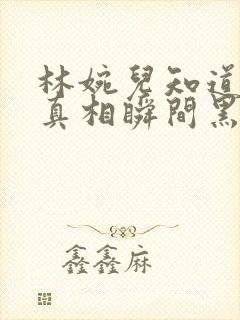 林婉兒知道
真相瞬間黑
鑫鑫麻